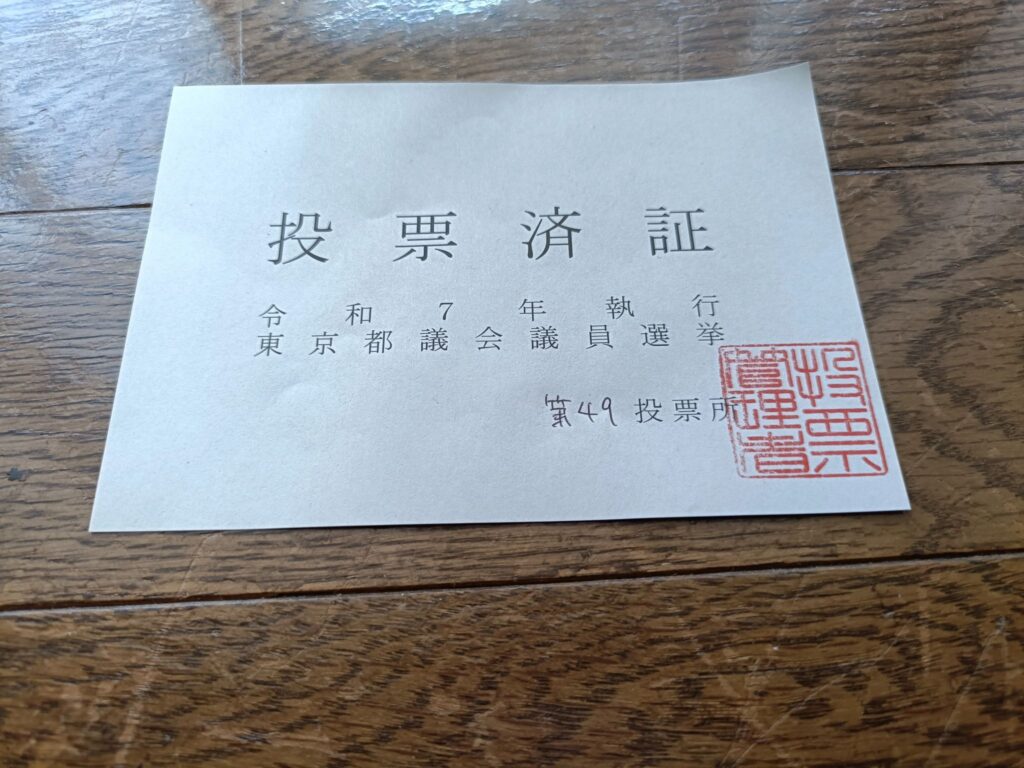 投票済証
令和7年執行
東京都議会議員選挙
第49投票所
投票管理者